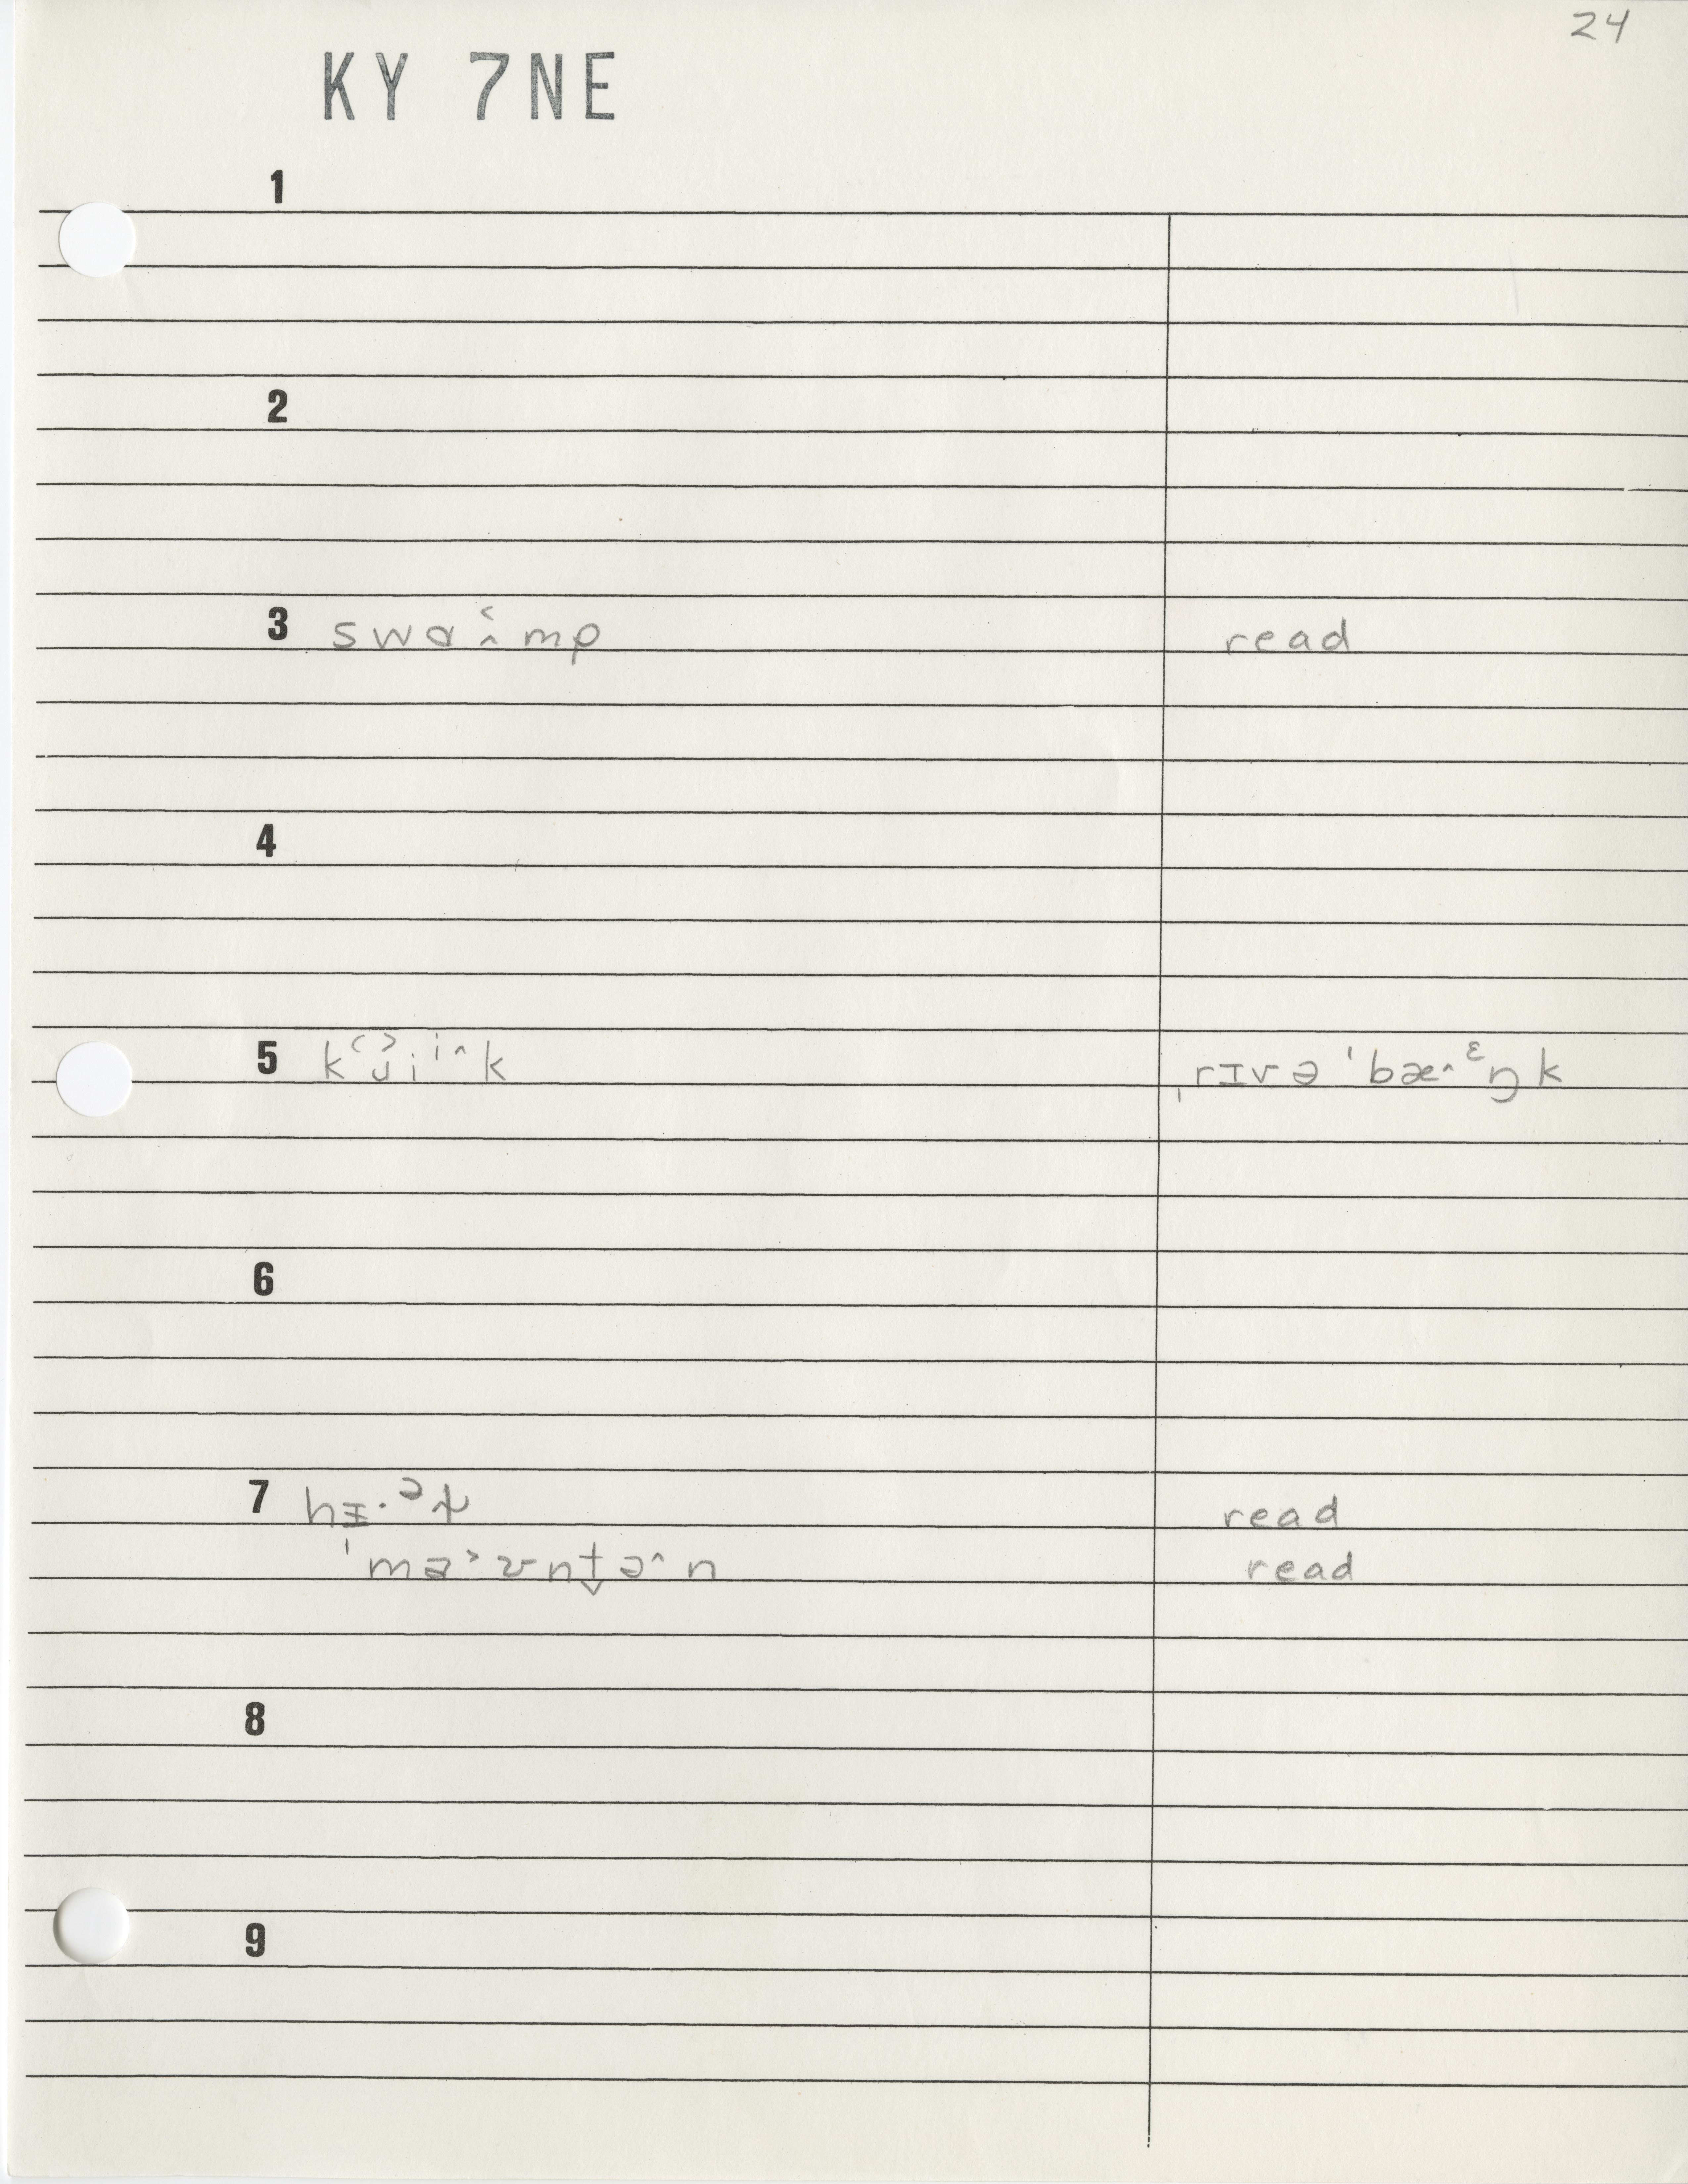 24
KY 7NE
1
2
3 swɑ˂˄mp read
4
5 k⁽ɹ̮⁾iⁱ˄k ˌrɪvə ˈbæ˄ᵋŋk
6
7 hɪ̵·ᵊɫ read
ˈmɑ˃ʊnt̬ə˄n read
8
9